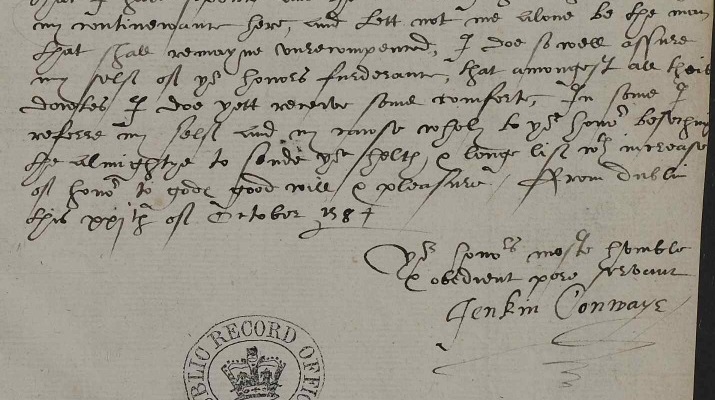 my continewance here, and lett not me alone be the man
that shall remayne unrecompenced, I doe so well assure
my self of yor honors furderance, that amongest all theis
dowbtes I doe yett receive some comforte, In some I
referre my self and my cawse wholy to yor honor beseching
the almightye to sende yor helth, & longe lif wth increase
of honor to godes good will & pleasure. From dublin
this xxjth of October 1584
Yor honors moste humble
& obedient pore servant
Jenkin Conwaye
PUBLIC RECORD OFFICE